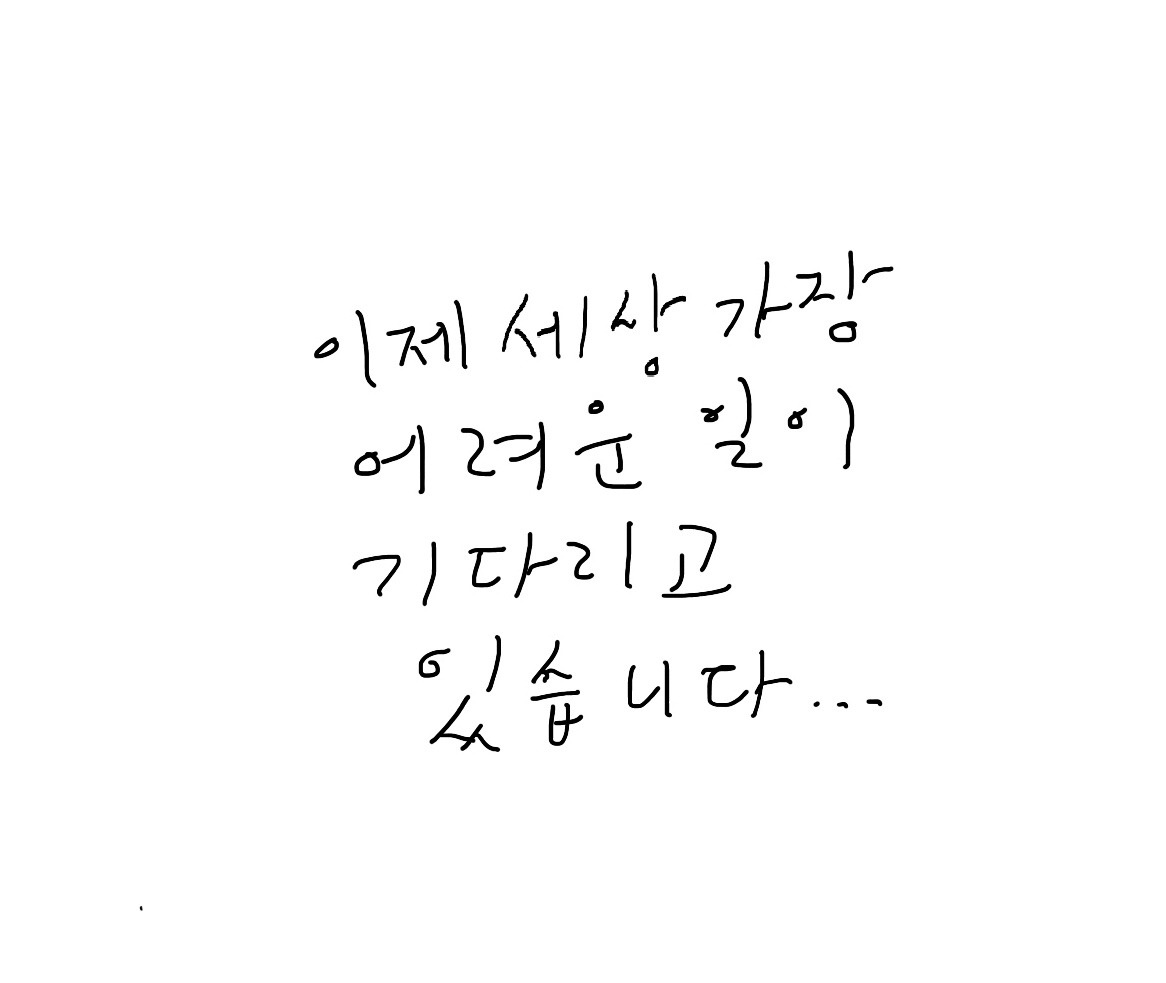 이제 세상 가장
어려운 일이
기다리고
있습니다...